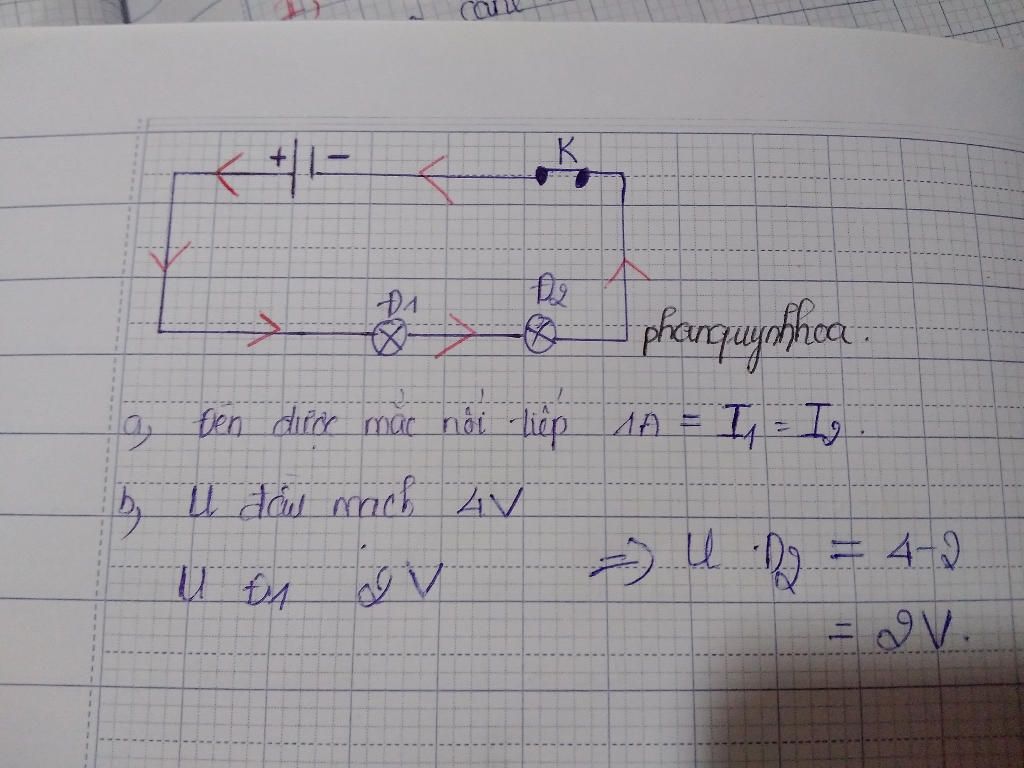 + - K
Đ1 Đ2
phanquynhhoa.
a, Đèn được mắc nối tiếp 1A = I1 = I2.
b, U đầu mạch 4V
U Đ1 2V => U Đ2 = 4-2
= 2V.